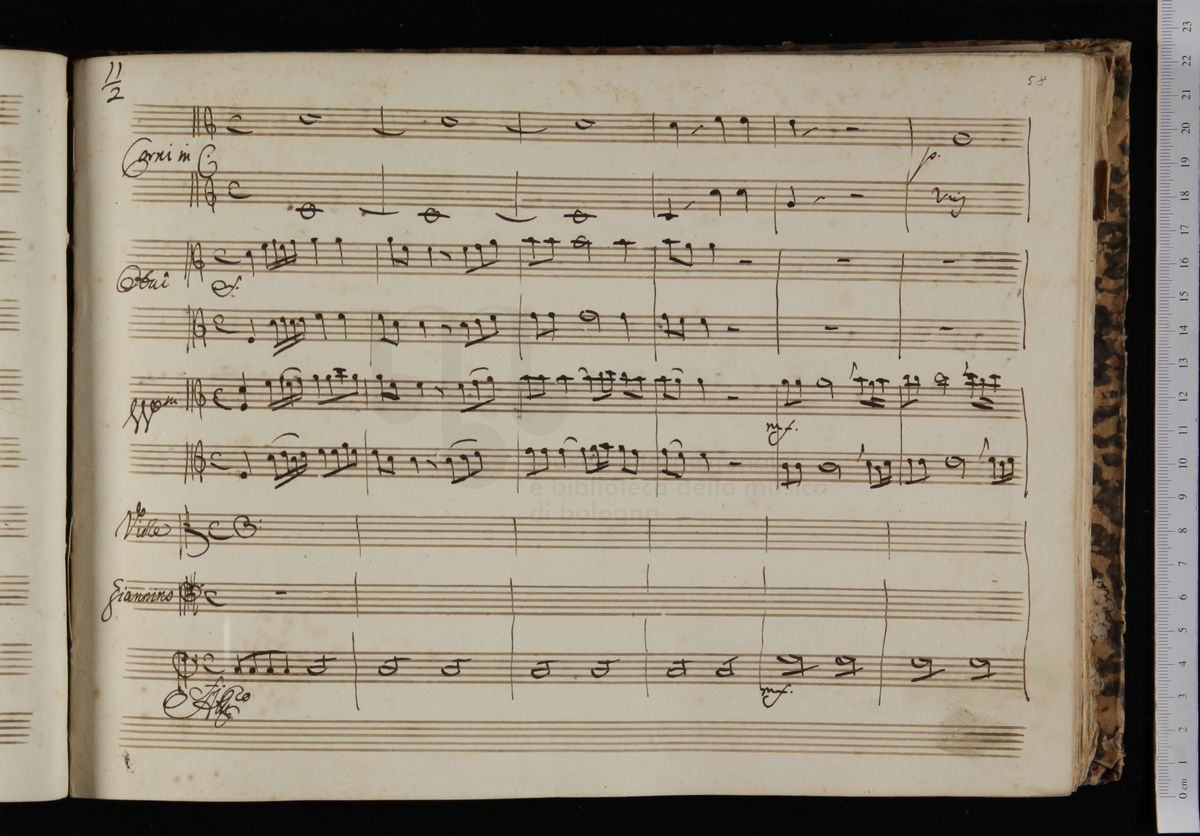 11
2
58
Corni in C
p.
Oboi
f.
mf.
Viole
Giannino
mf.
All.co
e biblioteca della musica
di bologna
23
22
21
20
19
18
17
16
15
14
13
12
11
10
9
8
7
6
5
4
3
2
1
0 cm